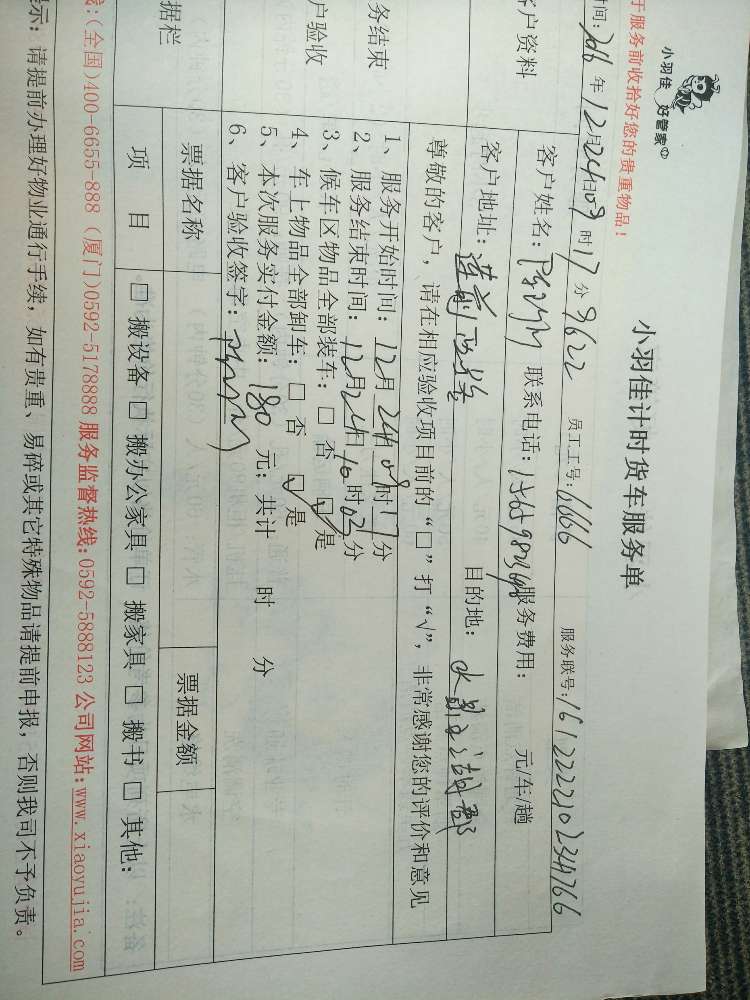 小羽佳 好管家
小羽佳计时货车服务单
于服务前收拾好您的贵重物品！
时间：2016年12月24日09时17分 9622 员工工号：6666 服务联号：161222210234766
客户资料
客户姓名： 联系电话： 服务费用： 元/车/趟
客户地址：莲前西路 目的地：水晶湖郡
尊敬的客户，请在相应验收项目前的“□”打“√”，非常感谢您的评价和意见
务结束
户验收
1、服务开始时间：12月24日09时17分
2、服务结束时间：12月24日10时02分
3、候车区物品全部装车：□ 否 ☑ 是
4、车上物品全部卸车：□ 否 ☑ 是
5、本次服务实付金额：180元；共计 时 分
6、客户验收签字：
据栏
票据名称 票据金额
项 目 □ 搬设备 □ 搬办公家具 □ 搬家具 □ 搬书 □ 其他：
线：(全国)400-6655-888 (厦门)0592-5178888 服务监督热线:0592-5888123 公司网站:www.xiaoyujia.com
示：请提前办理好物业通行手续，如有贵重、易碎或其它特殊物品请提前申报，否则我司不予负责。